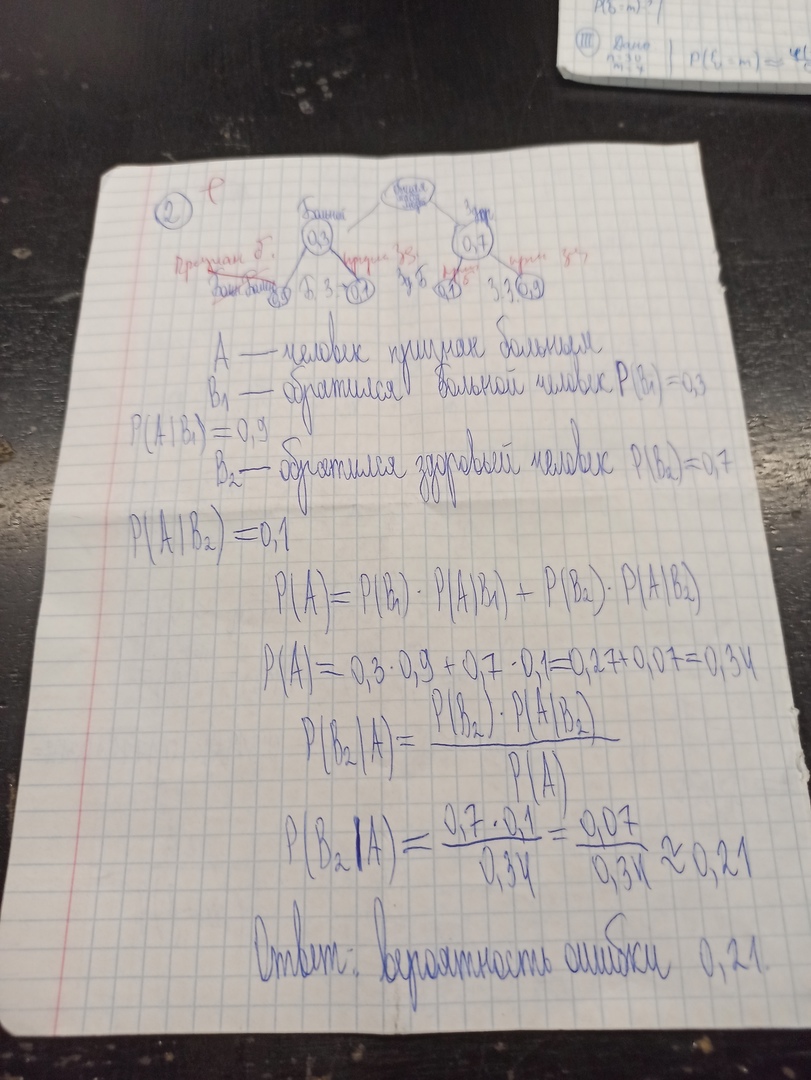 P(ξ=m)=
III Дано
P(ξ=m)=
2
Больной
Здор
0,3
0,7
признан б.
призн зд.
призн б
призн зд
Больн. Больн
Б.З.
0,1
Зд.Б
0,1
З.З.
0,9
A — человек признан больным
B₁ — обратился больной человек P(B₁)=0,3
P(A|B₁)=0,9
B₂ — обратился здоровый человек P(B₂)=0,7
P(A|B₂)=0,1
P(A)=P(B₁)·P(A|B₁)+P(B₂)·P(A|B₂)
P(A)=0,3·0,9+0,7·0,1=0,27+0,07=0,34
P(B₂|A)=P(B₂)·P(A|B₂)/P(A)
P(B₂|A)=0,7·0,1/0,34=0,07/0,34≈0,21
Ответ: вероятность ошибки 0,21.